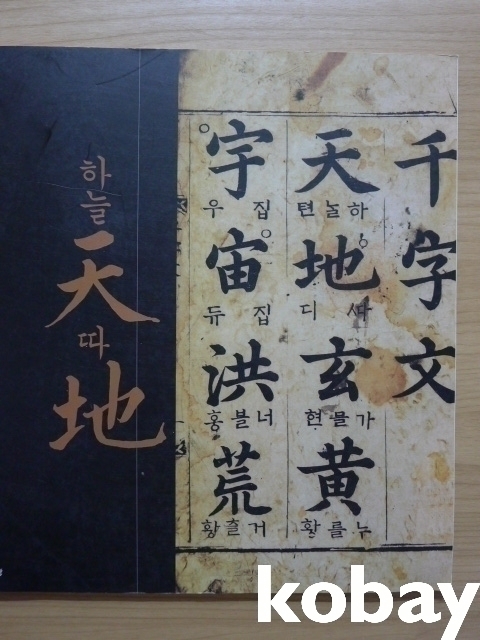 하늘
天
따
地
千字文
天
하ᄂᆞᆯ 텬
地
ᄯᅡ 디
玄
가믈 현
黃
누를 황
宇
집 우
宙
집 듀
洪
너블 홍
荒
거츨 황
kobay